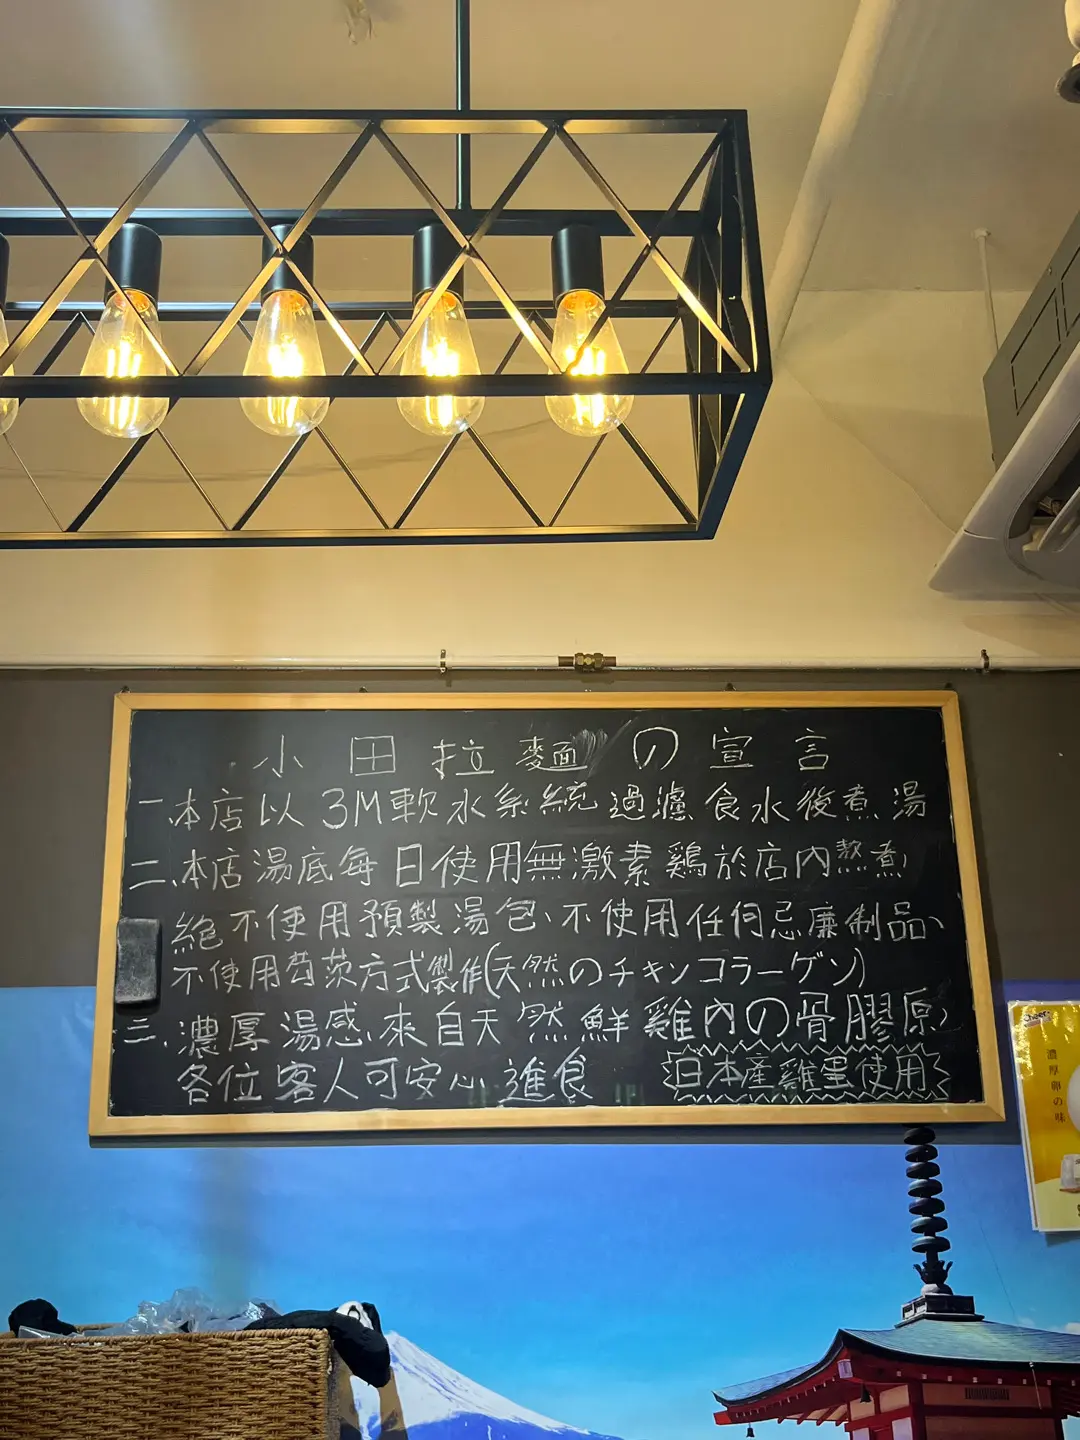 小田拉麵の宣言
一.本店以3M軟水系統過濾食水後煮湯
二、本店湯底每日使用無激素鶏於店內熬煮,
絕不使用預製湯包、不使用任何忌廉制品、
不使用芶茨方式製作(天然のチキンコラーゲン)
三、濃厚湯感、來自天然鮮雞內の骨膠原,
各位客人可安心進食
日本產雞蛋使用
Cheers
濃厚卵の味